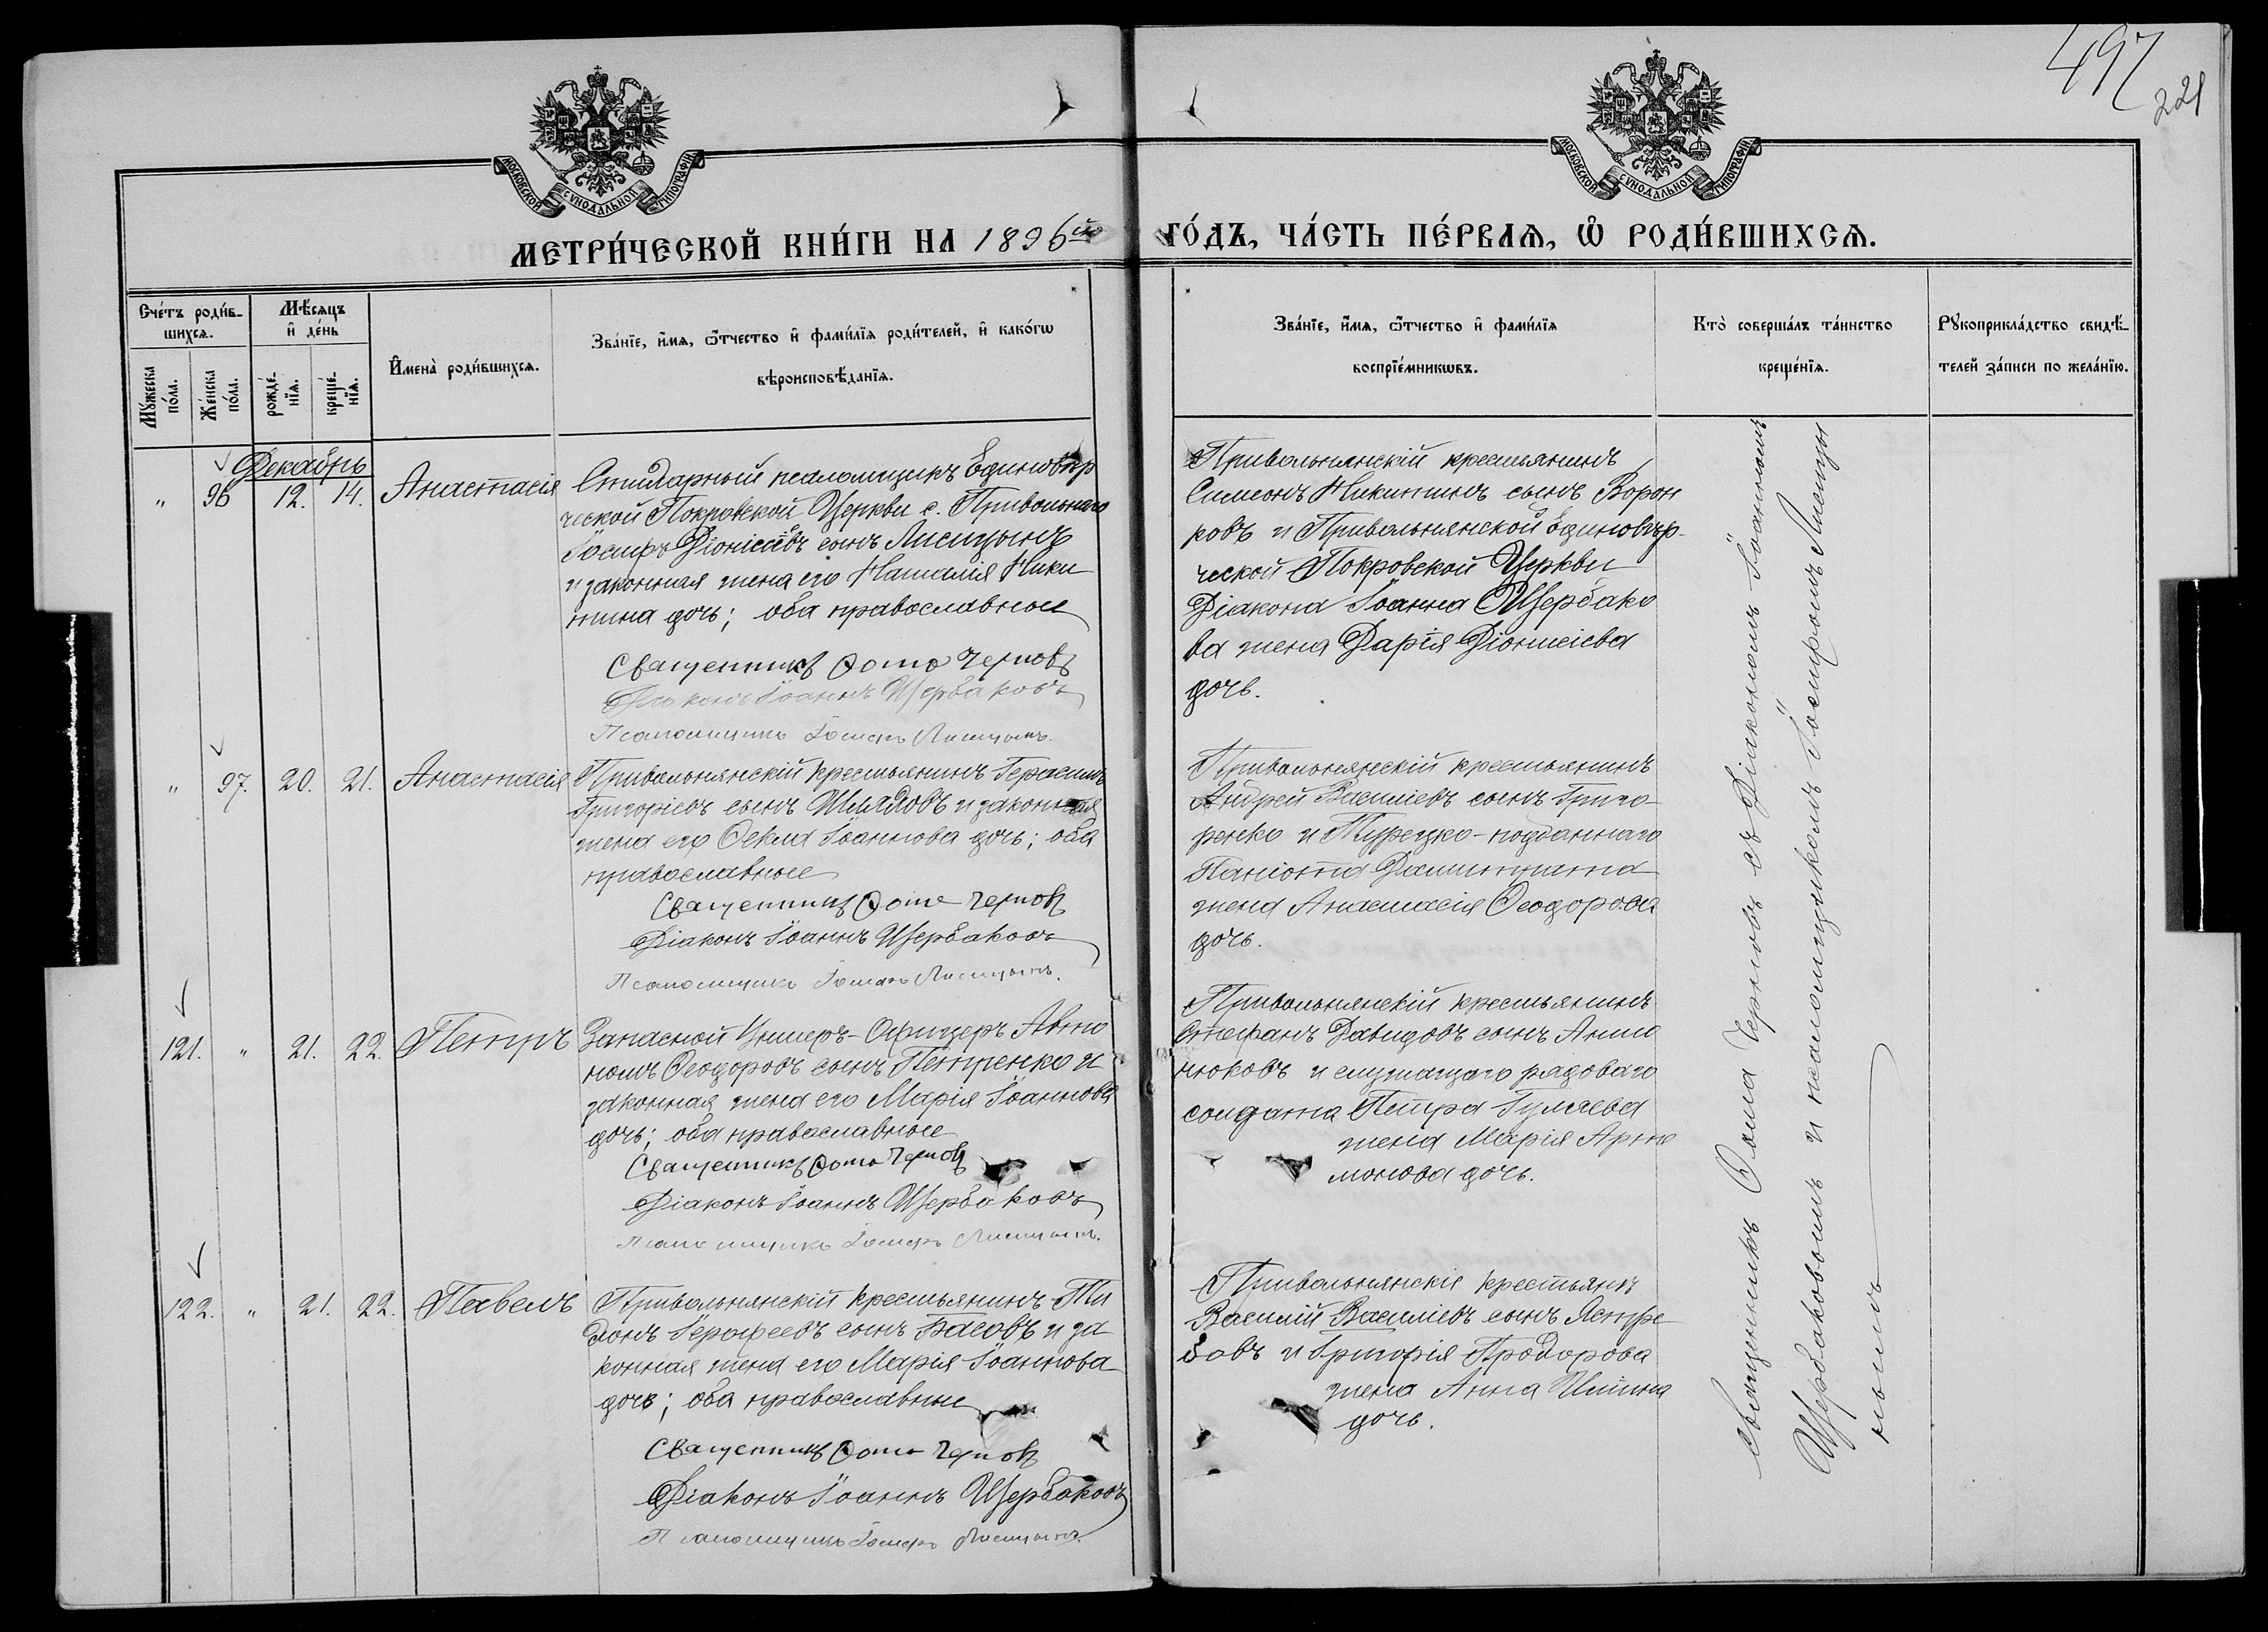 497
221
МОСКОВСКОЙ СѴНОДАЛЬНОЙ ТИПОГРАФІИ
МОСКОВСКОЙ СѴНОДАЛЬНОЙ ТИПОГРАФІИ
МЕТРИ́ЧЕСКОЙ КНИ́ГИ НА 1896й ГО́ДЪ, ЧА́СТЬ ПЕ́РВАѦ, Ѡ҆ РОДИ́ВШИХСѦ.
Сче́тъ роди́в-
шихсѧ.
Мꙋ́жеска
по́ла.
Же́нска
по́ла.
Мѣ́сѧцъ
и҆ де́нь
рожде́-
нїѧ.
креще́-
нїѧ.
И҆мена̀ роди́вшихсѧ.
Зва́нїе, и҆́мѧ, ѻ҆́тчество и҆ фами́лїѧ роди́телей, и҆ како́гѡ
вѣроисповѣ́данїѧ.
Зва́нїе, и҆́мѧ, ѻ҆́тчество и҆ фами́лїѧ
воспрїе́мникѡвъ.
Кто̀ соверша́лъ та́инство
креще́нїѧ.
Рꙋкоприкла́дство свидѣ́-
телей за́писи по жела́нїю.
Декабрь
" 96 12. 14. Анастасія
псаломщикъ Единовѣр
ческой Покровской Церкви с. Привольнаго
Іосифъ Діонісіевъ сынъ Лисицынъ
и законная жена его Наталія Ники
тина дочь; оба православные
Священникъ Ѳома Черновъ
Діаконъ Іоаннъ Щербаковъ
Псаломщикъ Іосифъ Лисицынъ.
Привольнянскій крестьянинъ
Симеонъ Никитинъ сынъ Ворон
ковъ и Привольнянской Единовѣр-
ческой Покровской Церкви
Діакона Іоанна Щербако
ва жена Дарія Діонисіева
дочь.
" 97. 20. 21. Анастасія
Привольнянскій крестьянинъ Герасимъ
Григоріевъ сынъ и законная
жена его Ѳекла Іоаннова дочь; оба
православные
Священникъ Ѳома Черновъ
Діаконъ Іоаннъ Щербаковъ
Псаломщикъ Іосифъ Лисицынъ.
Привольнянскій крестьянинъ
Андрей Василіевъ сынъ Григо-
ренко и Турецко-подданнаго
Паніота
жена Анастасія Ѳеодорова
дочь.
121. " 21. 22. Петръ
Запасной Унтеръ-Офицеръ Авто
номъ Ѳеодоровъ сынъ Петренко и
законная жена его Марія Іоаннова
дочь; оба православные
Священникъ Ѳома Черновъ
Діаконъ Іоаннъ Щербаковъ
Псаломщикъ Іосифъ Лисицынъ.
Привольнянскій крестьянинъ
Стефанъ Давидовъ сынъ Анто
нюковъ и служащаго рядоваго
солдата Петра Гуляева
жена Марія Арте
монова дочь.
122. " 21. 22. Павелъ
Привольнянскій крестьянинъ
Іерофеевъ сынъ Басовъ и за
конная жена его Марія Іоаннова
дочь; оба православные
Священникъ Ѳома Черновъ
Діаконъ Іоаннъ Щербаковъ
Псаломщикъ Іосифъ Лисицынъ.
Привольнянскіе крестьяне
Василій Василіевъ сынъ Ястре
бовъ и Григорія Продорова
жена Анна Ильина
дочь.
Священникъ Ѳома Черновъ съ Діакономъ Іоанномъ
Щербаковымъ и псаломщикомъ Іосифомъ Лисицы
нымъ